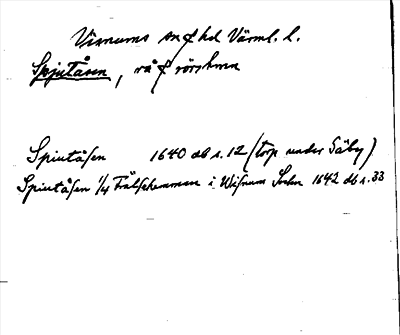 Visnums sn f hd Värml. l.
Spjutåsen, rå f rörsknen
Spiutåsen 1640 db s. 12 (torp under Säby)
Spiutåsen 1/4 Frälsehemman i Wisnum Sochn 1642 db s. 33